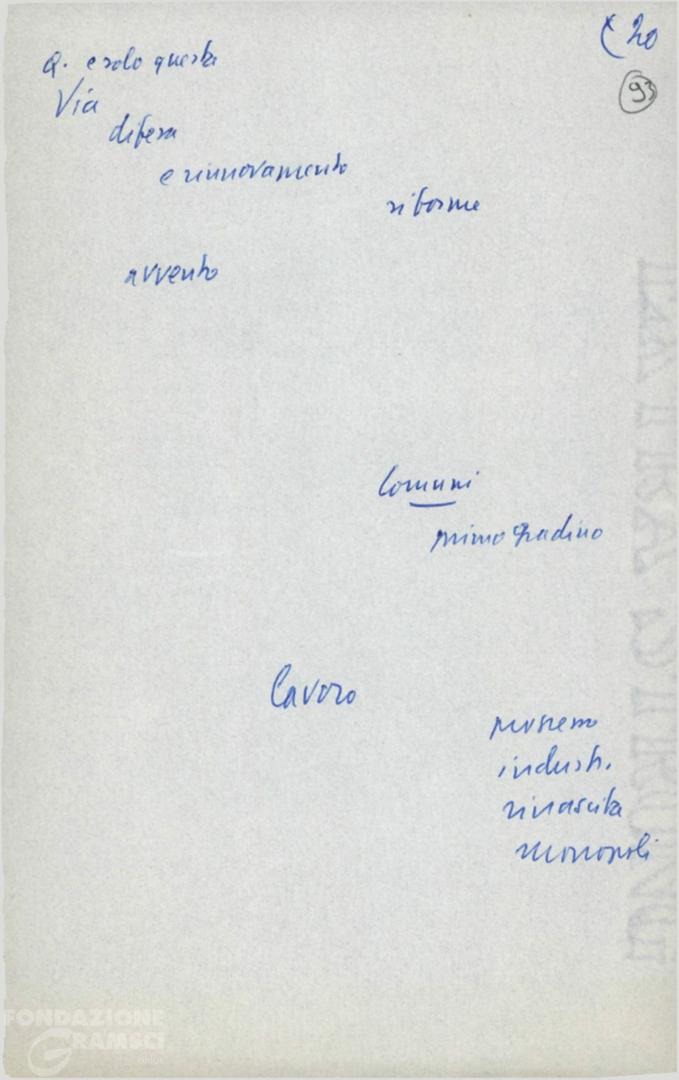 ( 20
93
a. e solo questa
Via
difesa
e rinnovamento
riforme
avvento
Comuni
primo gradino
Lavoro
industr.
rinascita
monopoli
FONDAZIONE
GRAMSCI